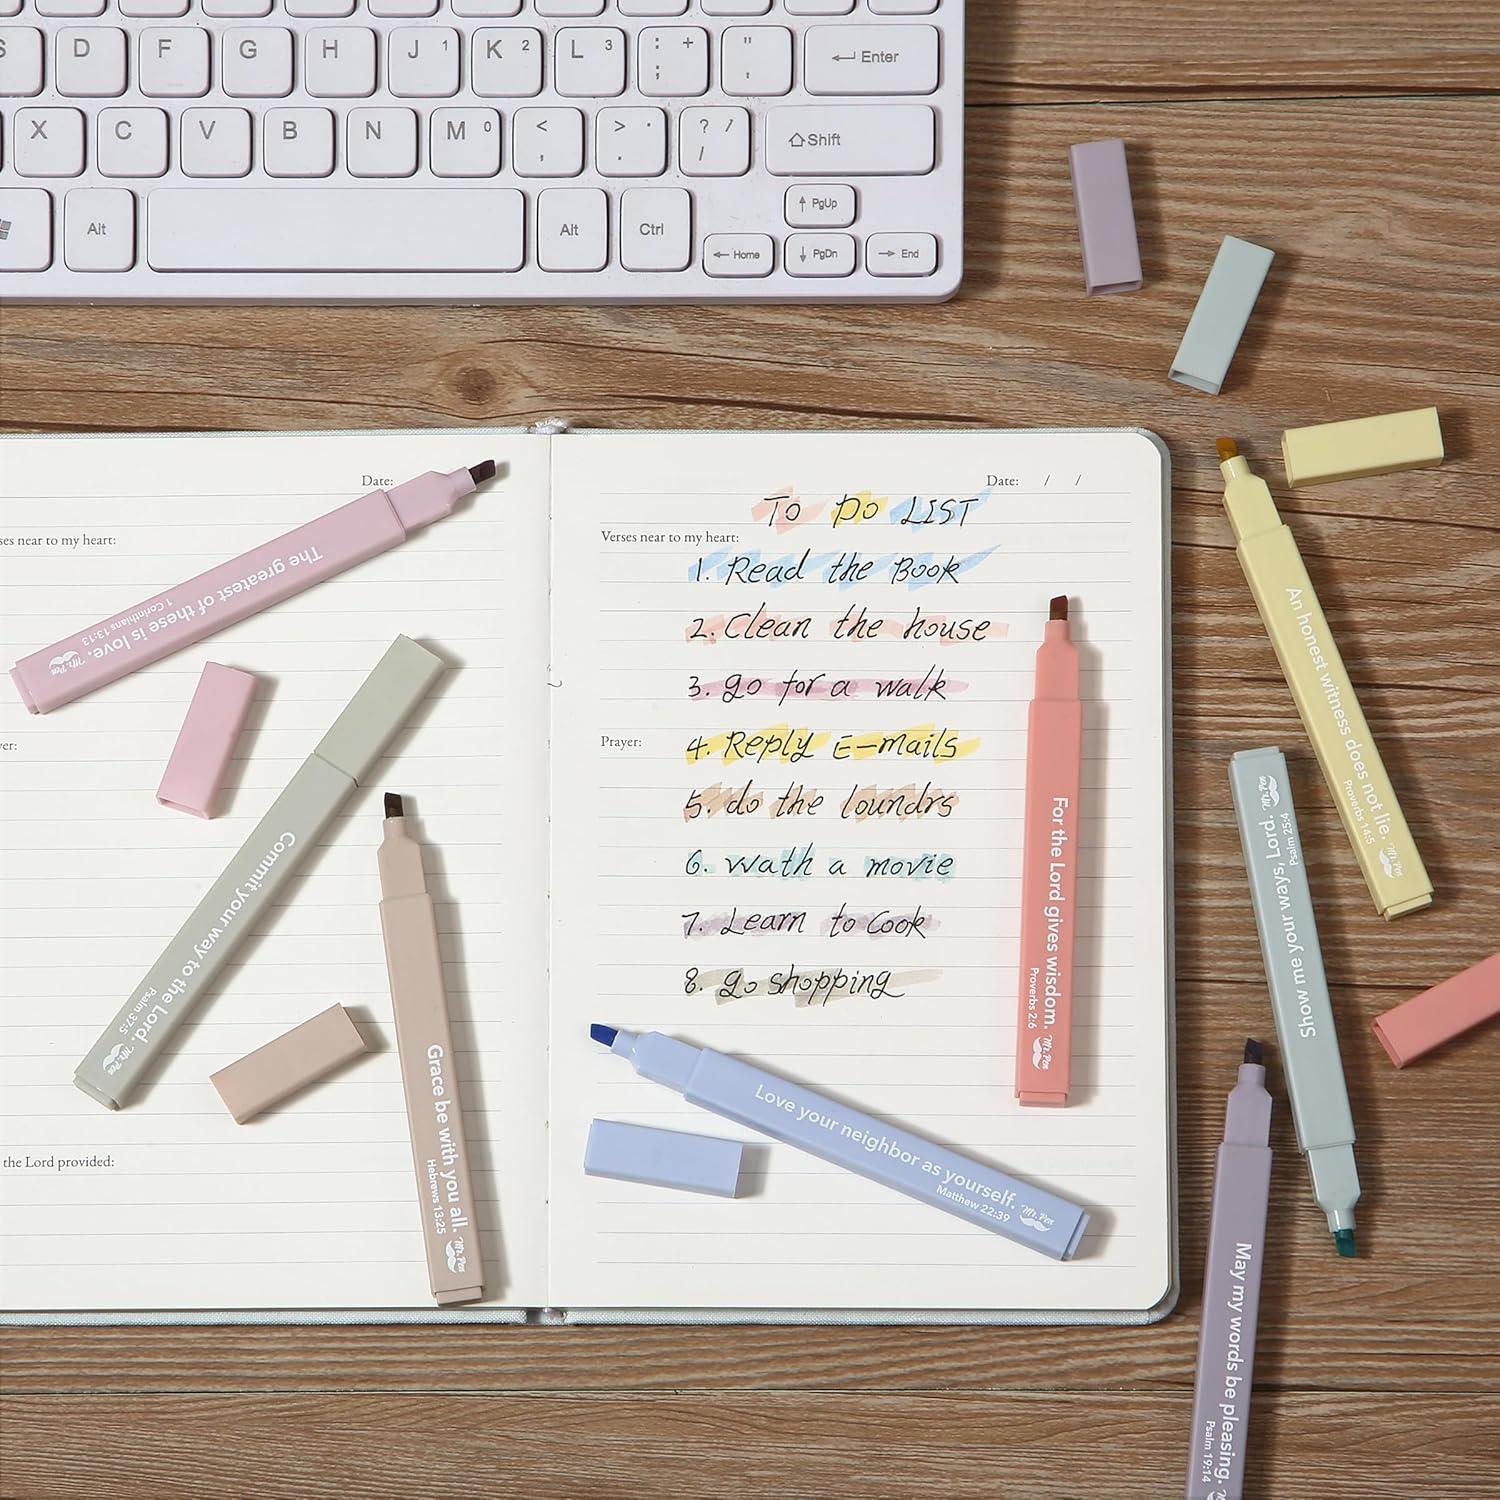 S D F G H J 1 K 2 L 3 : + ; " , Enter
X C V B N M 0 < , > . . ? / / Shift
Alt Alt Ctrl PgUp
Home PgDn End
Date:
ses near to my heart:
The greatest of these is love.
1 Corinthians 13:13
Mr. Pen
ver:
Commit your way to the Lord.
Psalm 37:5
Mr. Pen
Grace be with you all.
Hebrews 13:25
Mr. Pen
the Lord provided:
Date: / /
TO DO LIST
Verses near to my heart:
1. Read the Book
2. Clean the house
3. go for a walk
Prayer:
4. Reply E-mails
5. do the loundrs
6. wath a movie
7. Learn to Cook
8. go shopping
For the Lord gives wisdom.
Proverbs 2:6
Mr. Pen
Love your neighbor as yourself.
Matthew 22:39
Mr. Pen
An honest witness does not lie.
Proverbs 14:5
Mr. Pen
Show me your ways, Lord.
Psalm 25:4
Mr. Pen
May my words be pleasing.
Psalm 19:14